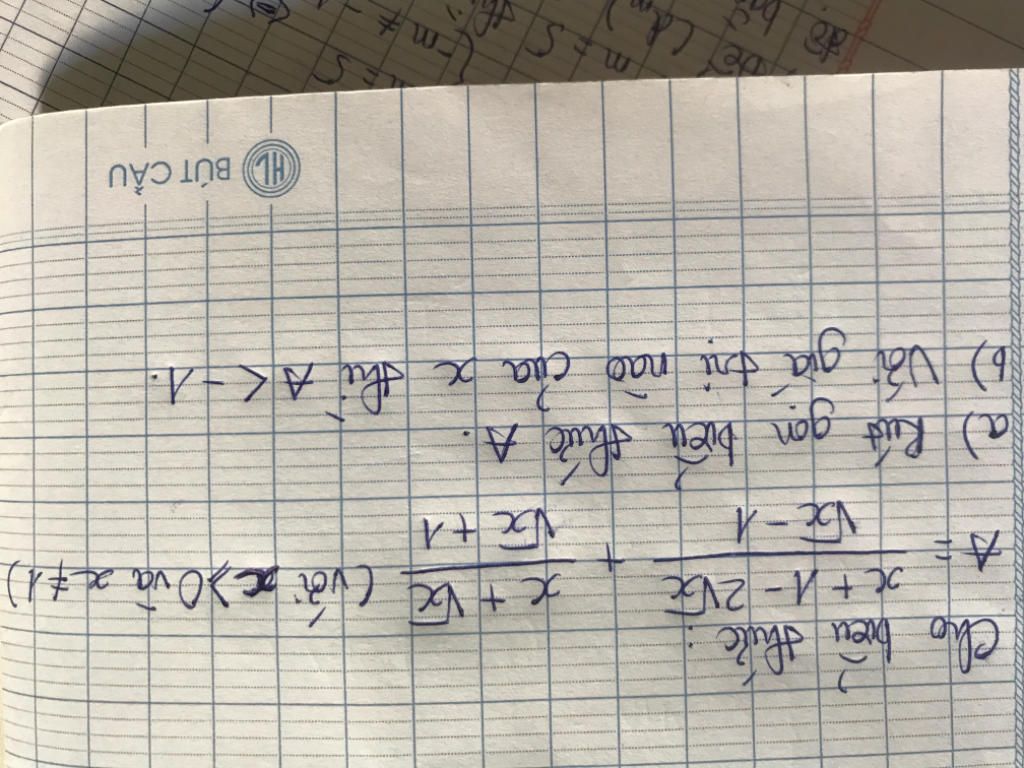 Cho biểu thức:
A = \frac{x + 1 - 2\sqrt{x}}{\sqrt{x} - 1} + \frac{x + \sqrt{x}}{\sqrt{x} + 1} (với x ≥ 0 và x ≠ 1)
a) Rút gọn biểu thức A.
b) Với giá trị nào của x thì A < -1.
HL BÚT CẦU
m = 5